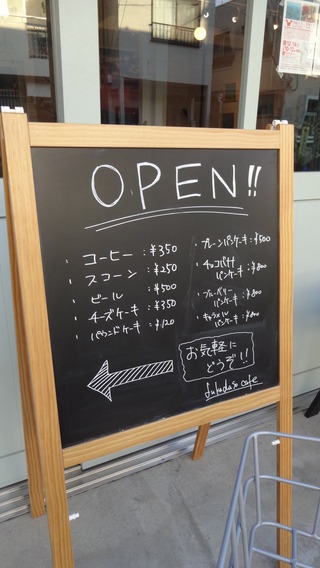 OPEN!!
・コーヒー：¥350
・スコーン：¥250
・ビール：¥500
・チーズケーキ：¥350
・パウンドケーキ：¥120
・プレーンパンケーキ：¥500
・チョコバナナ
パンケーキ：¥800
・ブルーベリー
パンケーキ：¥800
・キャラメル
パンケーキ：¥800
お気軽に
どうぞ!!
fukadaso cafe